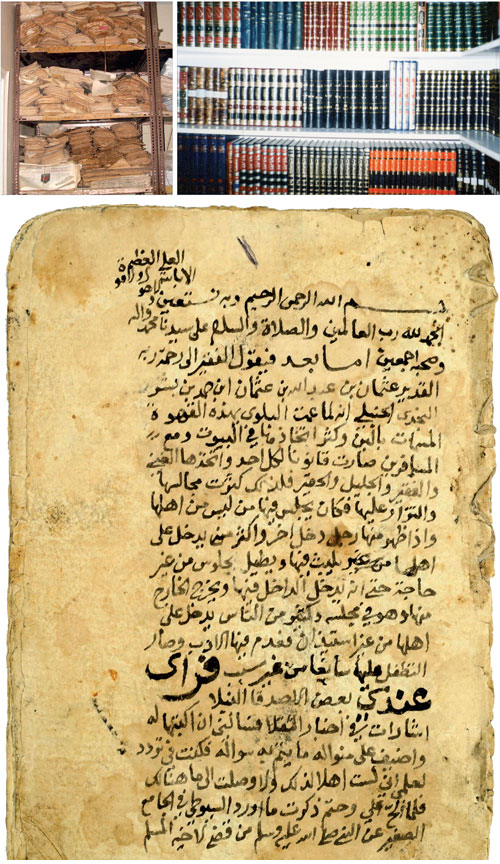 العلي العظيم
الا بالله ولا قوة
بسم الله الرحمن الرحيم وبه نستعين
الحمد لله رب العالمين والصلاة والسلام على سيدنا محمد واله
وصحبه اجمعين اما بعد فيقول الفقير الى رحمة ربه
القدير عثمان بن عبد الله بن عثمان ابن حمد بن بشر
النجدي الحنبلي انه لما عمت البلوى بهذه القهوة
المسمات بالبن وكثر اتخاذها في البيوت ومع
المسافرين صارت قانونا لكل احد واتخذها الغني
والفقير والجليل والحقير فلذلك كثرت مجالسها
والتوازر عليها فكان يجلس فيها من ليس من اهلها
واذا ظهر منها رجل دخل اخر واكثر من يدخل على
اهلها من غير يلبث فيها ويطيل جلوس من غير
حاجة حتى انه ليدخل الداخل فيها ويخرج الخارج
منها وهو في مجلسه وكثير من الناس يدخل على
اهلها من غير استيذان فعدم فيها الادب وصار
التطفل عليها سايغا من غير سبب فراى
عندي بعض الاصدقا الفضلا
اشارات في اخبار الثقلا فسالني ان اكتبها له
واضيف على منواله ما يتم به سواله فكنت في تردد
لعلمي اني لست اهلا لذلك ولا وصلت الى ما هنالك
فلما الح علي وحتم ذكرت ما اورد السيوطي في الجامع
الصغير عن النبي صلى الله عليه وسلم من قضى لاخيه المسلم